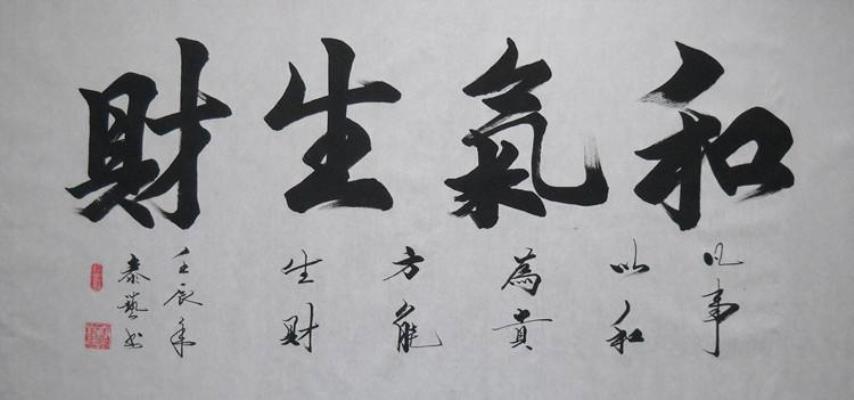 和氣生財
凡事
以和
為貴
方能
生財
壬辰年
泰藝书